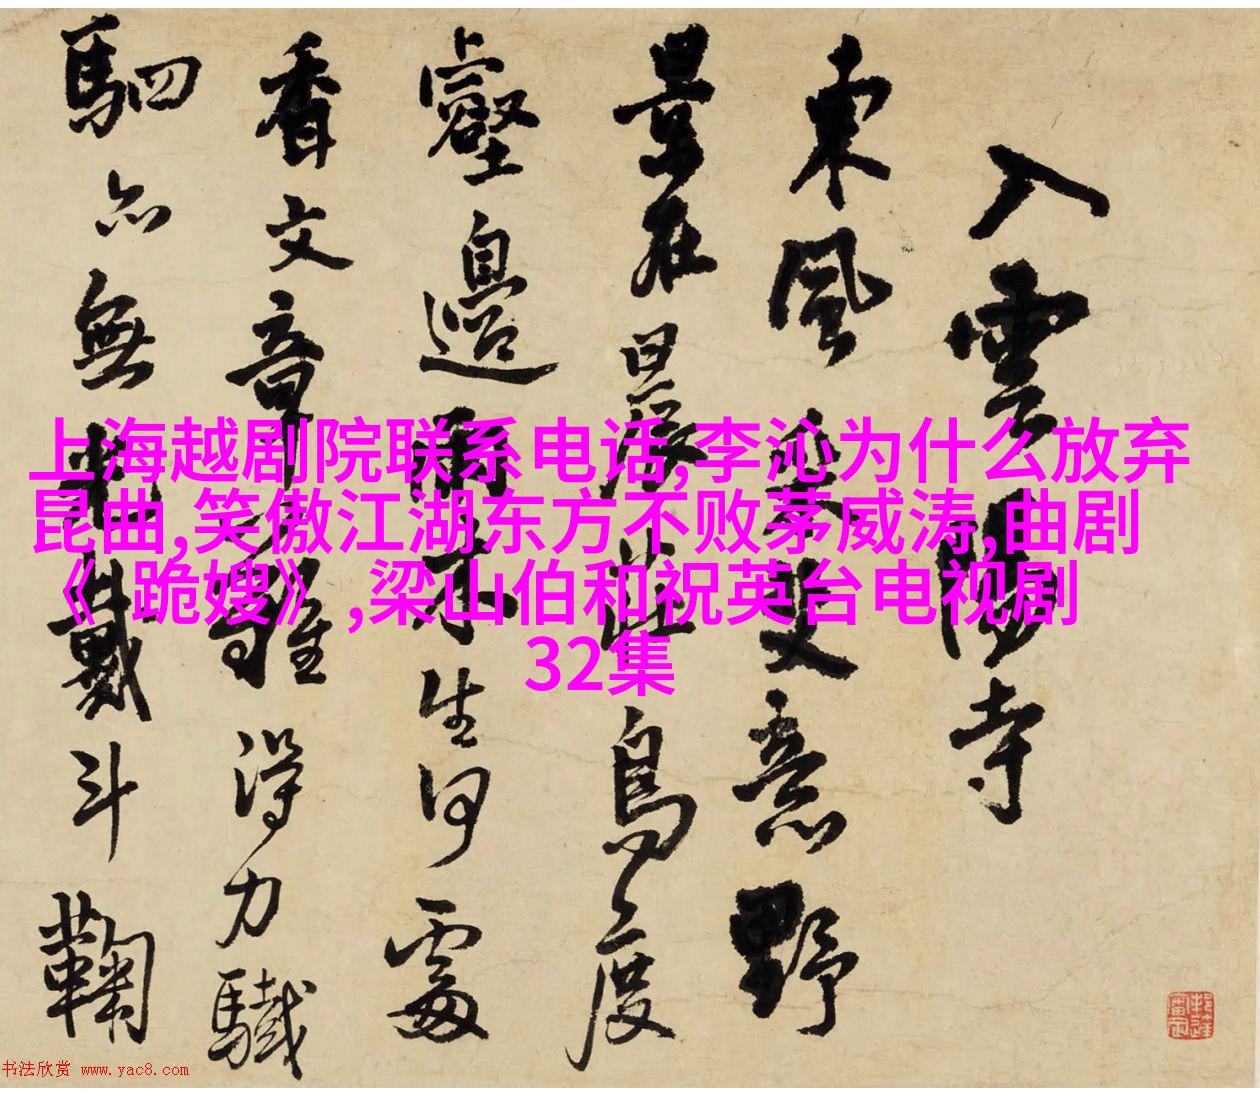 入雲陽寺
東風吹雙意野
景在晨莊鳥度
壑邊雨來生何處
香文章雖得力驖
駟亦無料戴斗鞠
上海越剧院联系电话,李沁为什么放弃
昆曲,笑傲江湖东方不败茅威涛,曲剧
《 跪嫂》,梁山伯和祝英台电视剧
32集
书法欣赏 www.yac8.com